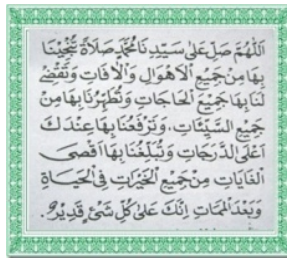 اَللّٰهُمَّ صَلِّ عَلٰى سَيِّدِنَا مُحَمَّدٍ صَلَاةً تُنْجِيْنَا
بِهَا مِنْ جَمِيْعِ الْاَهْوَالِ وَالْاٰفَاتِ وَتَقْضِىْ
لَنَا بِهَا جَمِيْعَ الْحَاجَاتِ وَتُطَهِّرُنَا بِهَا مِنْ
جَمِيْعِ السَّيِّئَاتِ، وَتَرْفَعُنَا بِهَا عِنْدَكَ
اَعْلَى الدَّرَجَاتِ وَتُبَلِّغُنَا بِهَا اَقْصَى
الْغَايَاتِ مِنْ جَمِيْعِ الْخَيْرَاتِ فِى الْحَيَاةِ
وَبَعْدَ الْمَمَاتِ اِنَّكَ عَلٰى كُلِّ شَىْءٍ قَدِيْرٌ